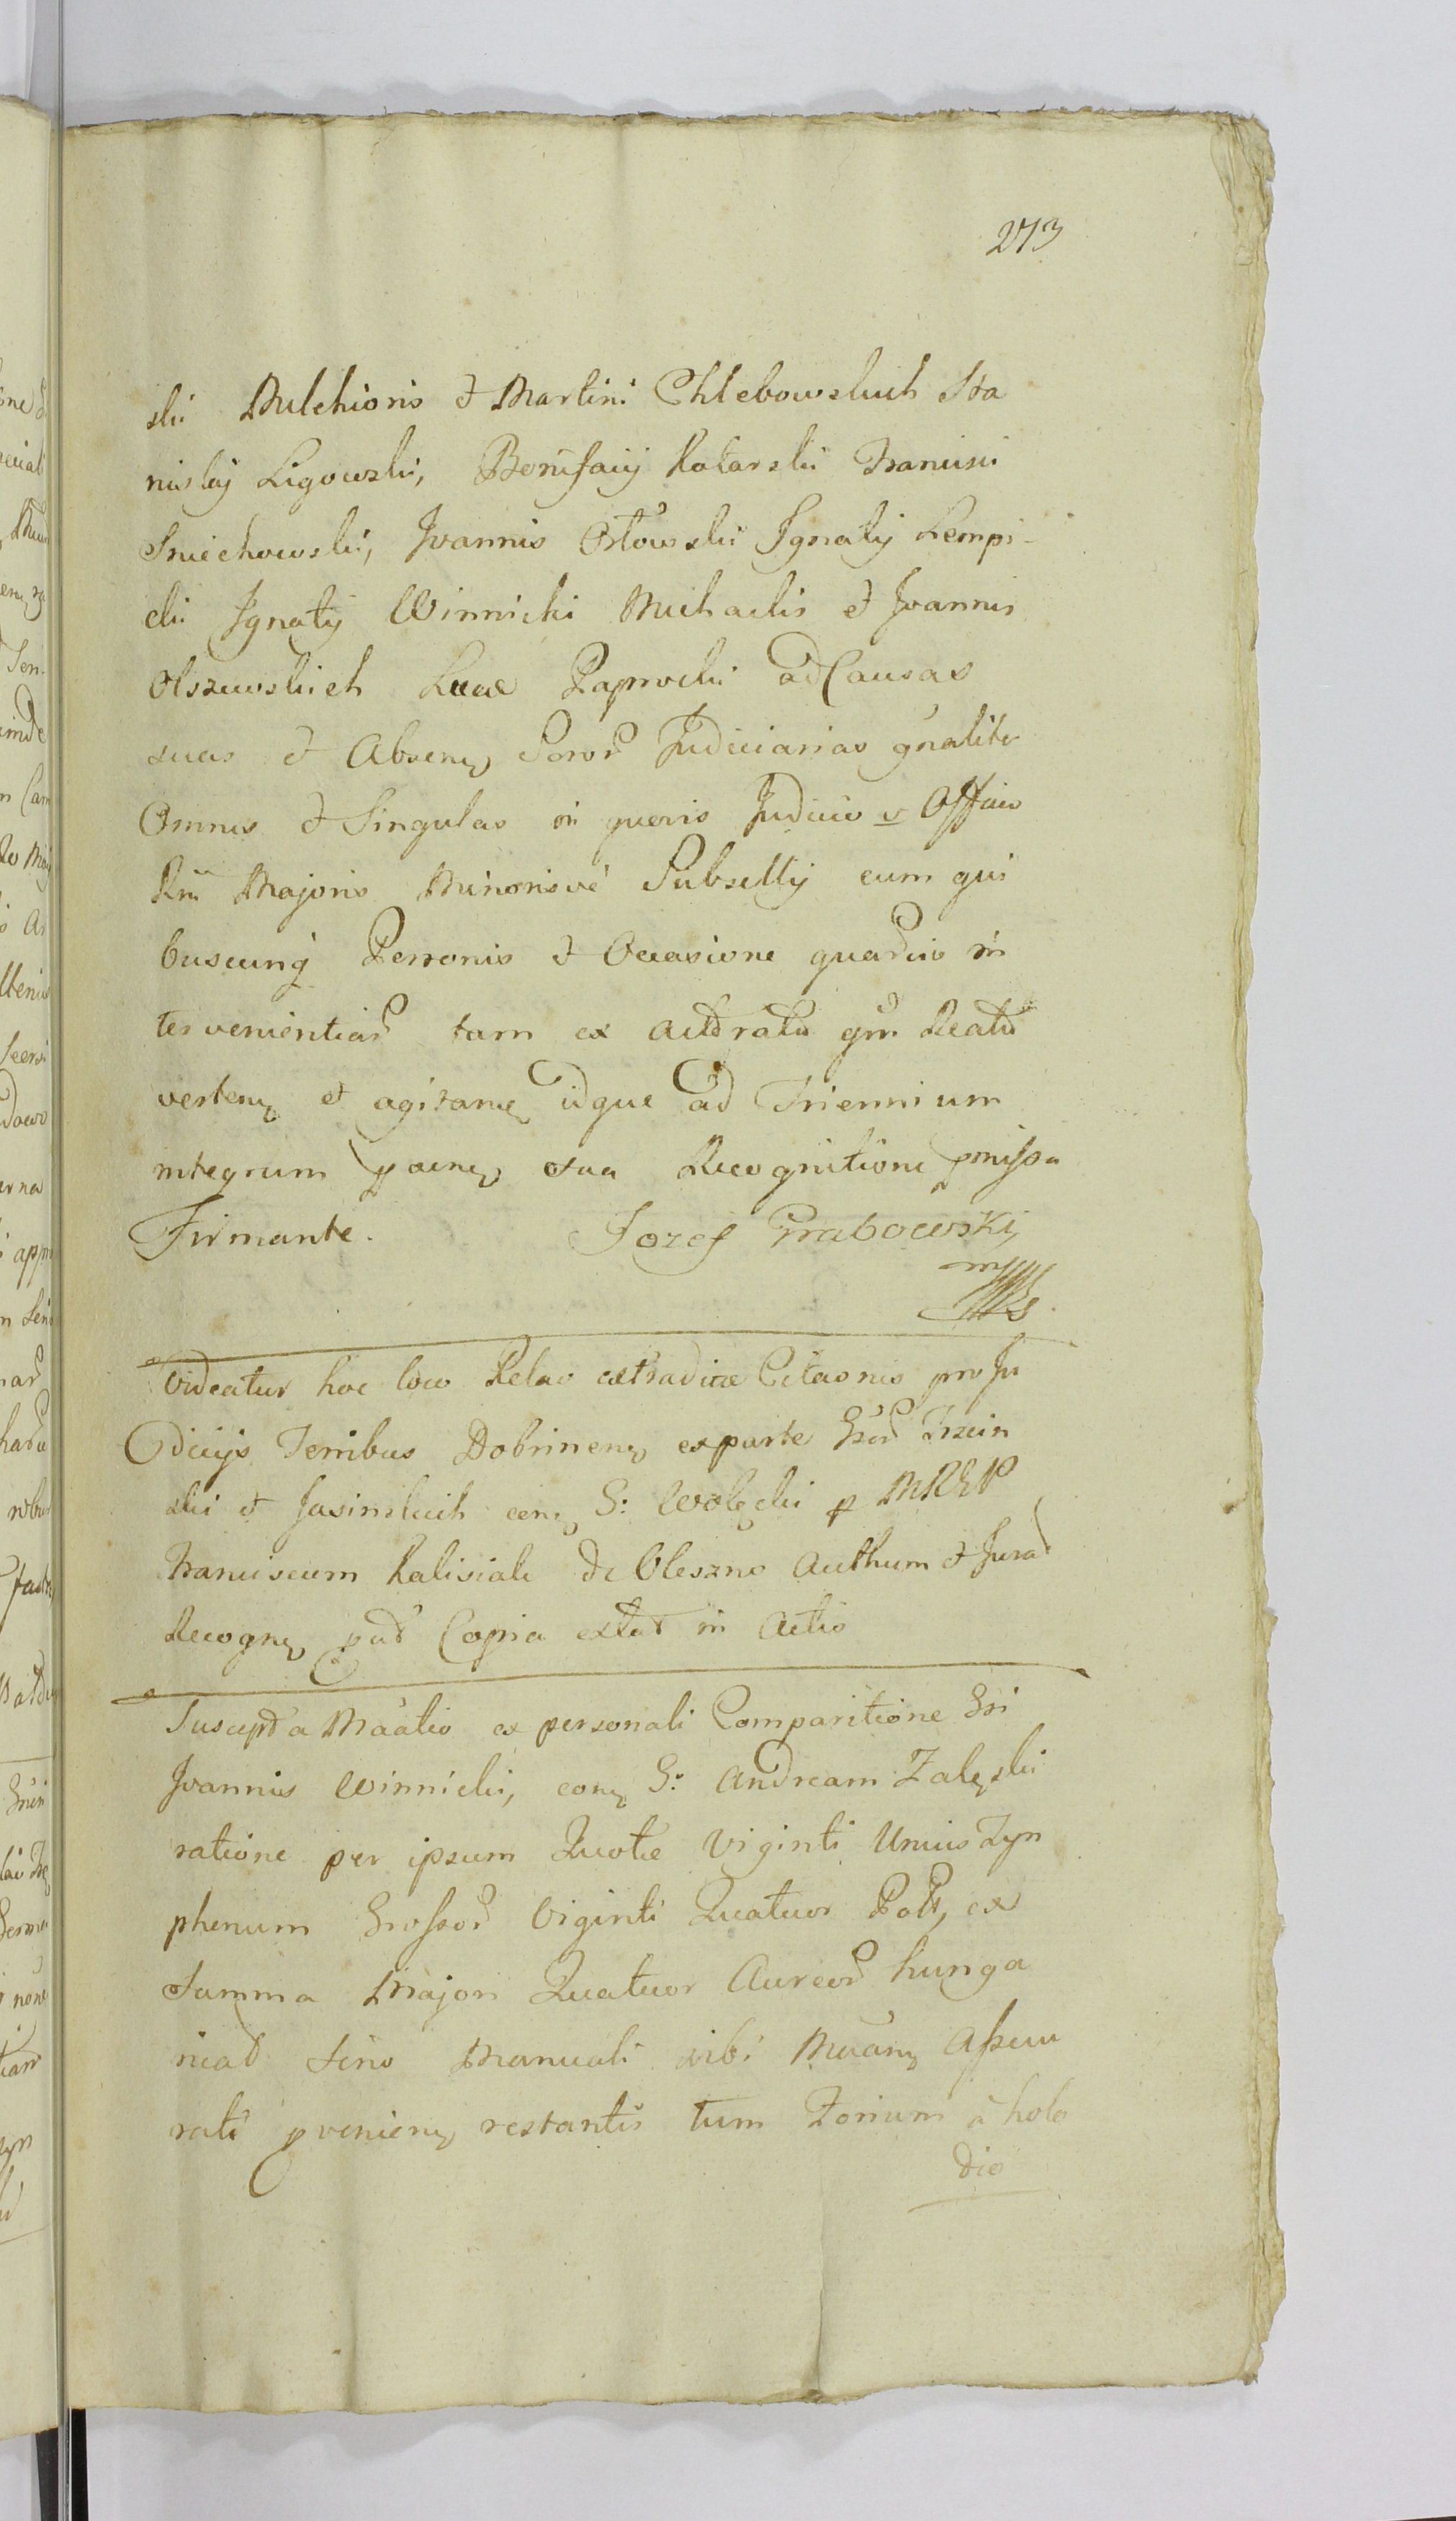 273
ski Melchioris et Martini Chlebowskich Sta
nislai Ligowski, Bonifacij Kotarski Francisci
Sniechowski, Joannis Orłowski Ignatij Lempi-
cki Ignatij Winnicki Michaelis et Joannis
Olszewskich Lucae Paprocki ad Causas
suas et Absenę Soror Judiciarias gnaliter
Omnes et Singulas in quovis Judicio v Officio
Rni Majoris Minorisve Subsellij cum qui
buscunq Personis et Occasione quarcio in
tervenientiar tam ex actoratu qm Reatu
vertenę et agitanę idque ad Triennium
integrum pacenę sua Recognitione pmissa
Firmante. Jozef Grabowski
mp
Videatur hoc loco Relao extradicae Citaonis pro Ju
dicijs Terribus Dobrinenę ex parte Gsor Trzcin
ski et Jasinskich conę G: Wolęcki p MRGP
Franciscum Kalisiak de Oleszno Authum et Jurat
Recognę put Copia extat in Actis
Suscepta Maatio ex personali Comparitione Gsi
Joannis Winnicki, conę G: Andream Zalęski
ratione per ipsum Quotae Viginti Unius Tyn
phonum Grossor Viginti Quatuor Poll, ex
Summa Majori Quatuor Aureor hunga
ricat Scro Manuali sibi Maanę Assecu
rati pvenienę restantis tum Zonium a holo
dio